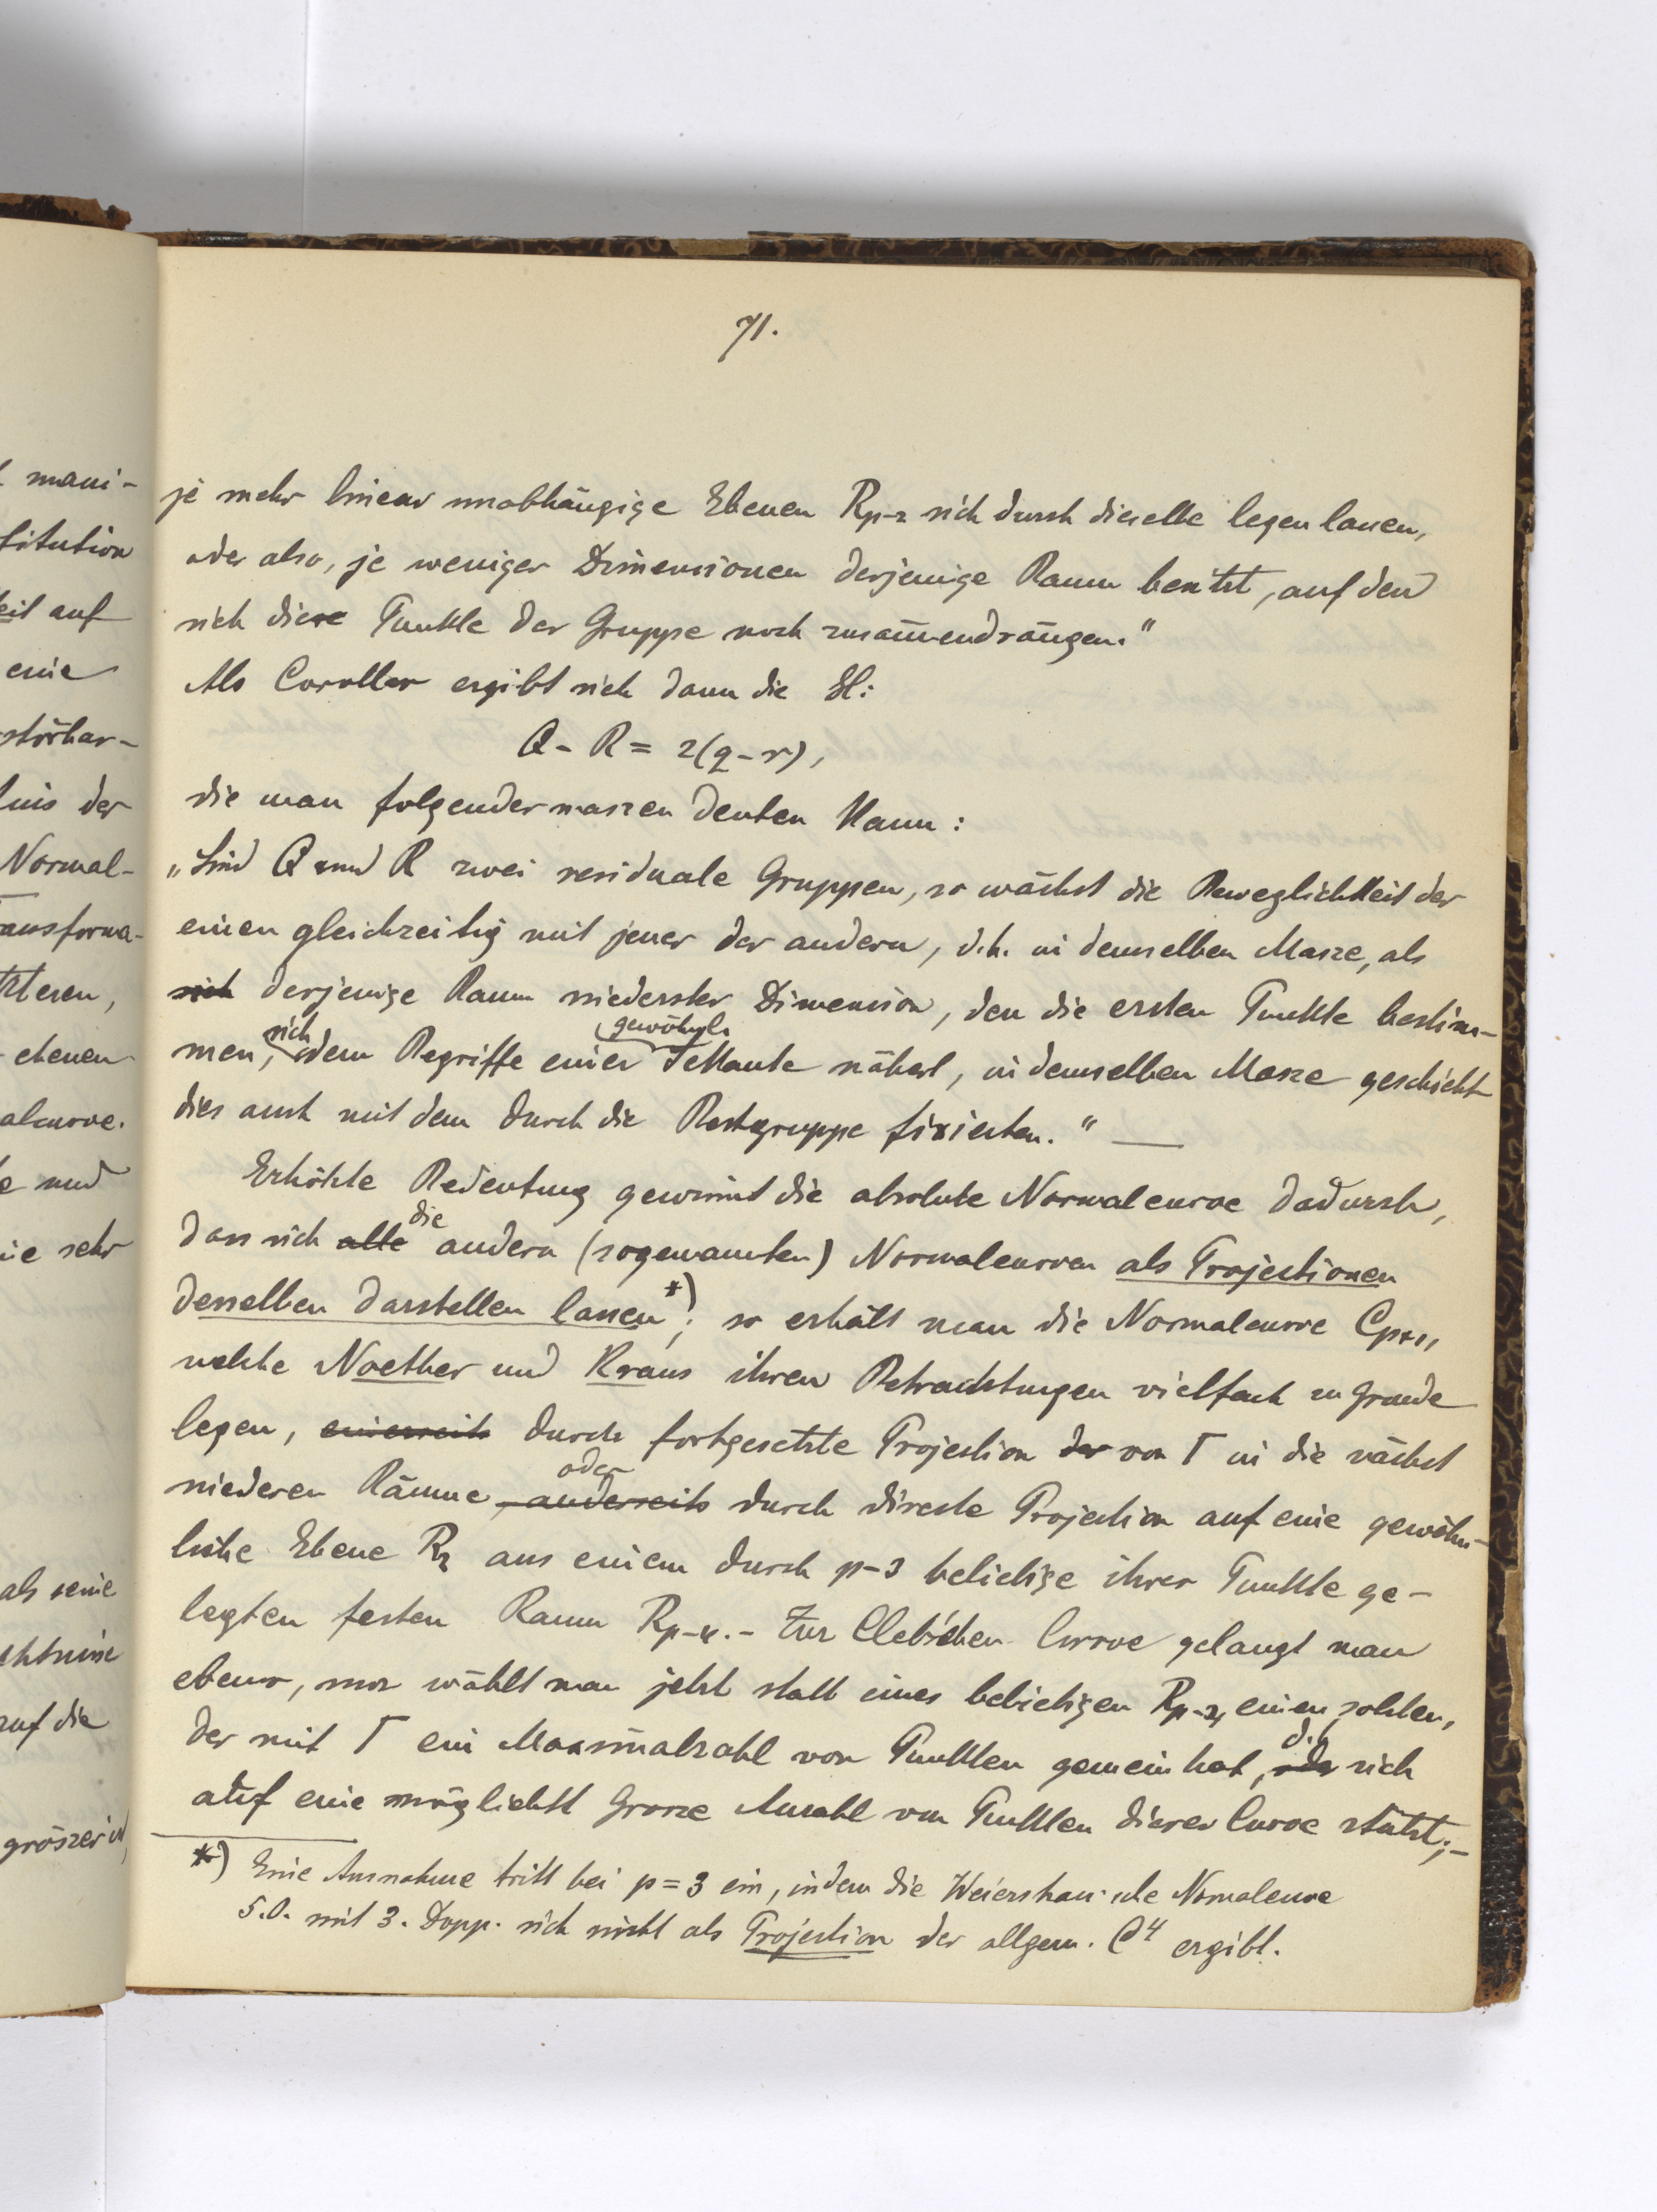 71.
je mehr linear unabhängige Ebenen Rp-2 sich durch dieselbe legen lassen,
oder also, je weniger Dimensionen derjenige Raum besitzt, auf den
sich diese Punkte der Gruppe noch zusam̅endrängen."
Als Corollar ergibt sich dann die Gl:
Q - R = 2(q-r),
die man folgendermaszen deuten kann:
„Sind Q und R zwei residuale Gruppen, so wächst die Beweglichkeit der
einen gleichzeitig mit jener der andern, d.h. in demselben Masze, als
sich derjenige Raum niederster Dimension, den die ersten Punkte bestim-
men, sich dem Begriffe einer gewöhnl. Sekante nähert, in demselben Masze geschieht
dies auch mit dem durch die Restgruppe fixierten." —
Erhöhte Bedeutung gewinnt die absolute Normalcurve dadurch,
dass sich alle die andern (sogenannten) Normalcurven als Projectionen
derselben darstellen lassen*); so erhält man die Normalcurve Cp+1,
welche Noether und Kraus ihren Betrachtungen vielfach zu Grunde
legen, einerseits durch fortgesetzte Projection der von Γ in die nächst
niederen Räume, anderseits oder durch directe Projection auf eine gewöhn-
liche Ebene R2 aus einem durch p-3 beliebige ihrer Punkte ge-
legten festen Raum Rp-4. - Zur Clebschen Curve gelangt man
ebenso, nur wählt man jetzt statt eines beliebigen Rp-4 einen solchen,
der mit Γ ein Maximalzahl von Punkten gemein hat, oder d.h. sich
auf eine möglichst grosze Anzahl von Punkten dieser Curve stützt; -
*) Eine Ausnahme tritt bei p=3 ein, indem die Weierstrass'sche Normalcurve
5.O. mit 3. Dopp. sich nicht als Projection der allgem. C4 ergibt.
mani-
stitution
eit auf
eine
störbar-
nis der
Normal-
ansforma-
tzteren,
ebenen
alcurve.
e und
ie sehr
als seine
auf die
gröszer ist,